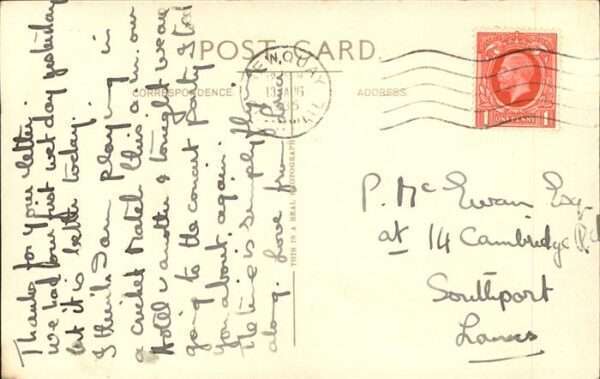 POST CARD.
CORRESPONDENCE
ADDRESS
NEWQUAY
13 AUG
1935
THIS IS A REAL PHOTOGRAPH
1 ONE PENNY 1
Thanks for your letter.
we had our first wet day yesterday
but it is better today.
I think Dan playing in
a cricket match this a.m. our
Hotel v another & tonight we are
going to the concert party I told
you about again.
The time is simply flying
along. Love from
P. McEwan Esq.
at 14 Cambridge Rd
Southport
Lancs